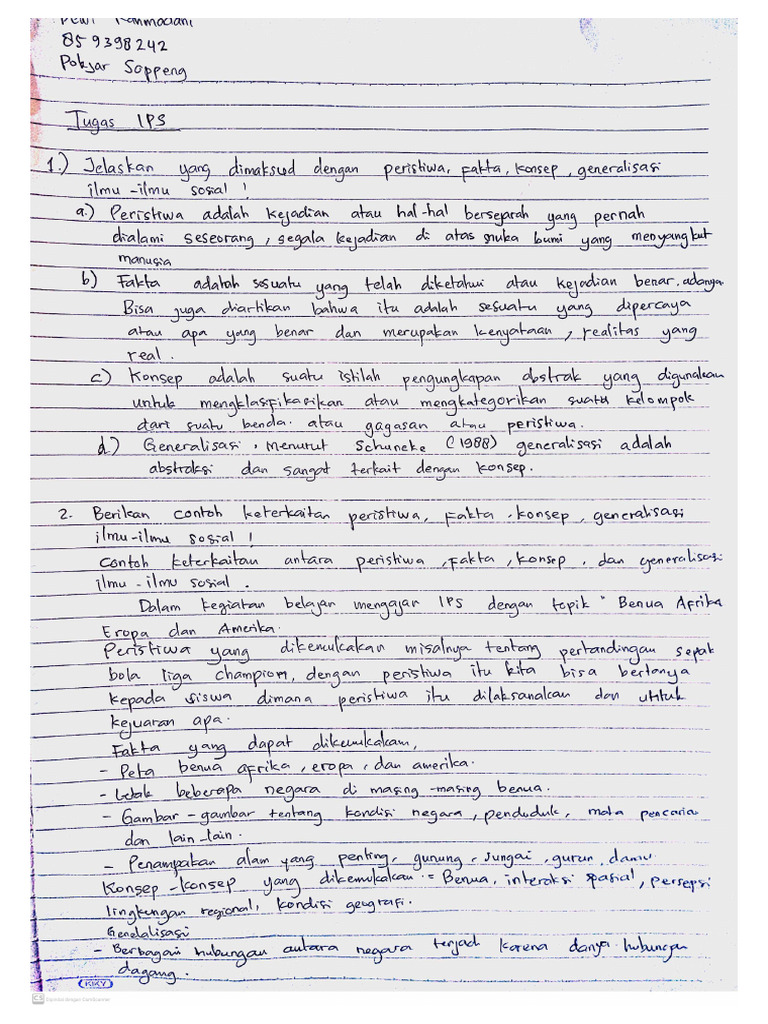 Dewi Rahmadani
859398242
Pokjar Soppeng
Tugas IPS
1.) Jelaskan yang dimaksud dengan peristiwa, fakta, konsep, generalisasi
ilmu-ilmu sosial !
a.) Peristiwa adalah kejadian atau hal-hal bersejarah yang pernah
dialami seseorang, segala kejadian di atas muka bumi yang menyangkut
manusia
b) Fakta adalah sesuatu yang telah diketahui atau kejadian benar. adanya
Bisa juga diartikan bahwa itu adalah sesuatu yang dipercaya
atau apa yang benar dan merupakan kenyataan, realitas yang
real.
c) Konsep adalah suatu istilah pengungkapan abstrak yang digunakan
untuk mengklasifikasikan atau mengkategorikan suatu kelompok
dari suatu benda. atau gagasan atau peristiwa.
d) Generalisasi, menurut Schuneke (1988) generalisasi adalah
abstraksi dan sangat terkait dengan konsep.
2. Berikan contoh keterkaitan peristiwa, fakta, konsep, generalisasi
ilmu-ilmu sosial !
Contoh keterkaitan antara peristiwa, fakta, konsep, dan generalisasi
ilmu-ilmu sosial.
Dalam kegiatan belajar mengajar IPS dengan topik " Benua Afrika
Eropa dan Amerika.
Peristiwa yang dikemukakan misalnya tentang pertandingan sepak
bola liga champion, dengan peristiwa itu kita bisa bertanya
kepada siswa dimana peristiwa itu dilaksanakan dan untuk
kejuaran apa.
Fakta yang dapat dikemukakam,
- Peta benua afrika, eropa, dan amerika.
- Letak beberapa negara di masing-masing benua.
- Gambar-gambar tentang kondisi negara, penduduk, mata pencaria
dan lain-lain.
- Penampakan alam yang penting, gunung, sungai, gurun, danu
Konsep-konsep yang dikemukakan = Benua, interaksi spasial, persepsi
lingkungan regional, kondisi geografi.
Genelalisasi
- Berbagai hubungan antara negara terjadi karena danya hubungan
dagang.
KIKY
CS Dipindai dengan CamScanner